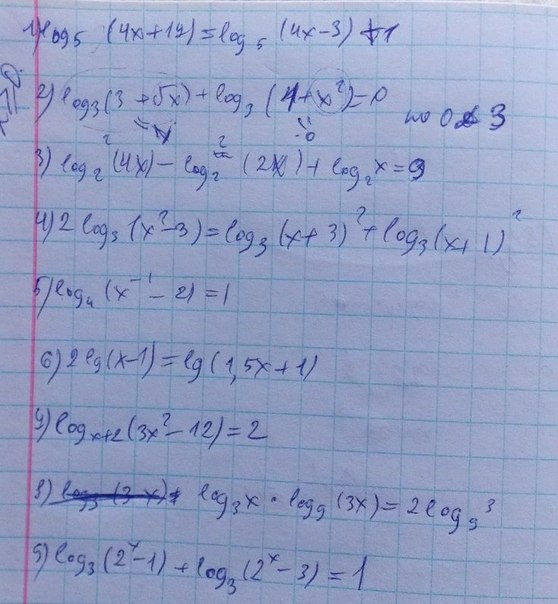 1) log₅ (4x+19) = log₅ (4x-3) +1
2) log₃(3 + √x) + log₃ (1+x²)=0
по 3
3) log₂²(4x) - log₂² (2x) + log₂x = 9
4) 2 log₃ (x²-3) = log₃ (x+3)² + log₃(x+1)²
5) log₄ (x⁻¹ - 2) = 1
6) 2 lg(x-1) = lg(1,5x+1)
7) logₓ₊₂(3x²-12) = 2
8) log₃x · log₉ (3x) = 2log₉3
9) log₃(2ˣ-1) + log₃(2ˣ-3) = 1